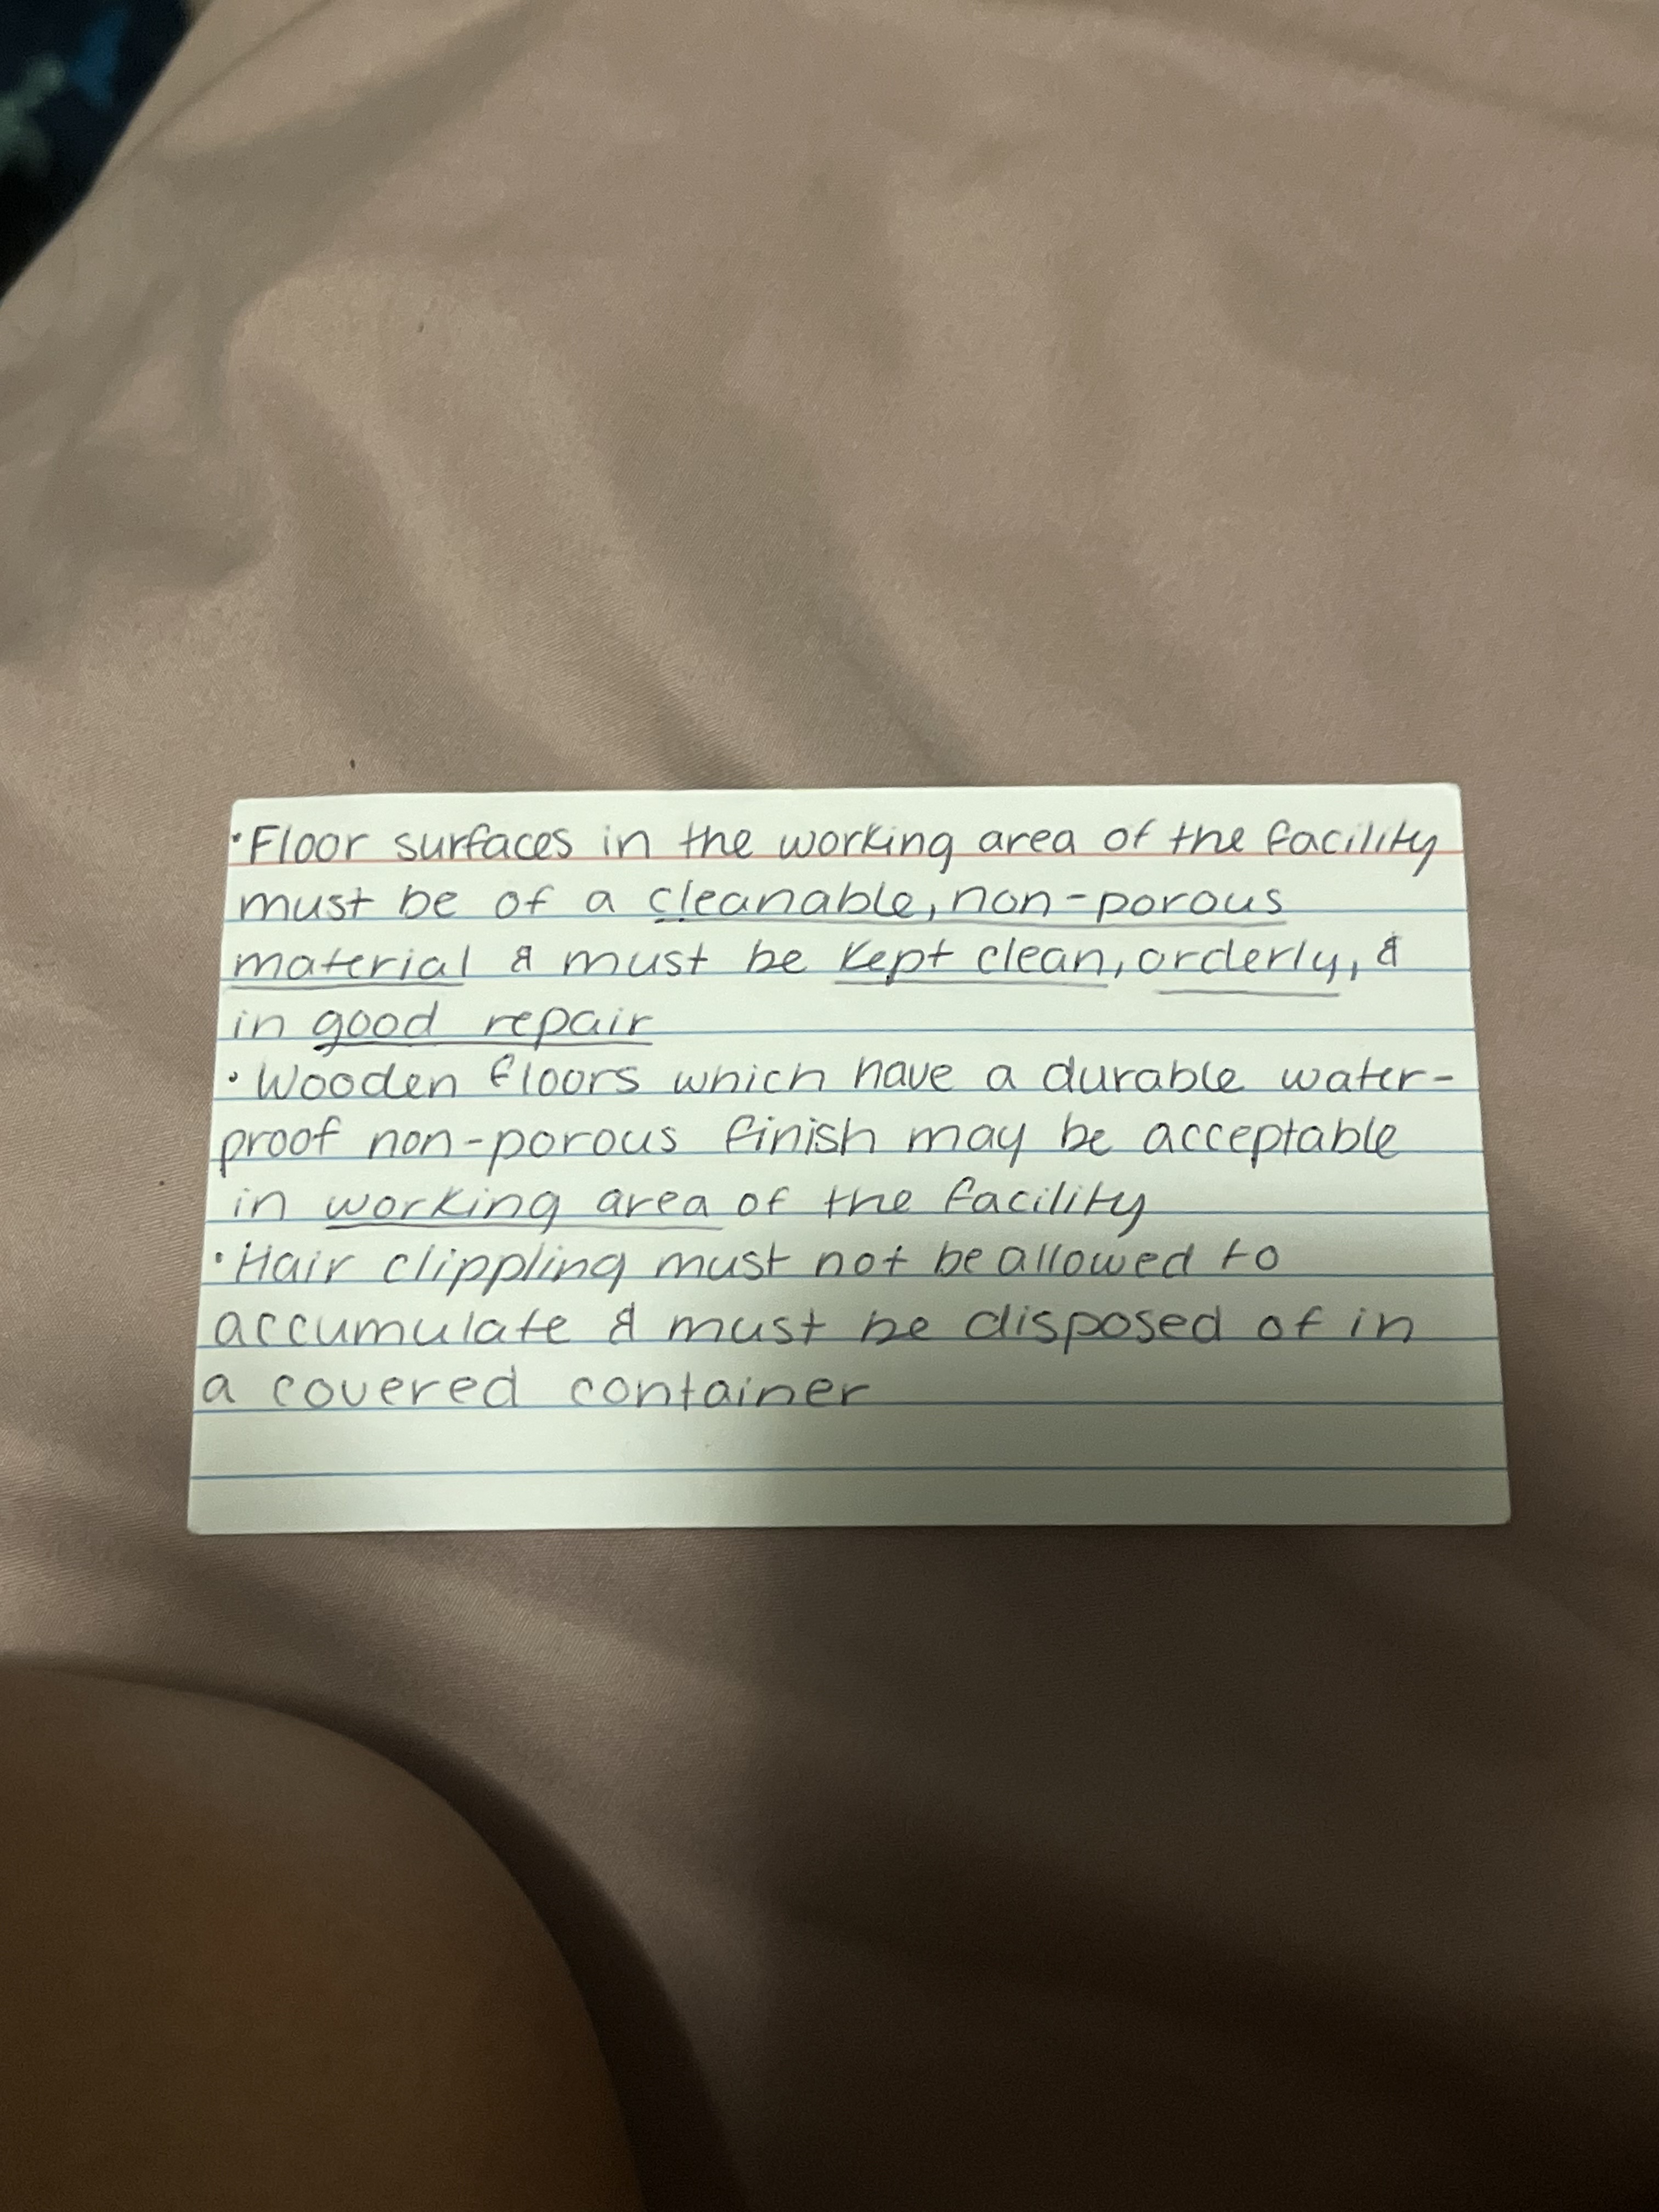 ·Floor surfaces in the working area of the facility
must be of a cleanable, non-porous
material & must be kept clean, orderly, &
in good repair
·Wooden floors which have a durable water-
proof non-porous finish may be acceptable
in working area of the facility
·Hair clippling must not be allowed to
accumulate & must be disposed of in
a covered container